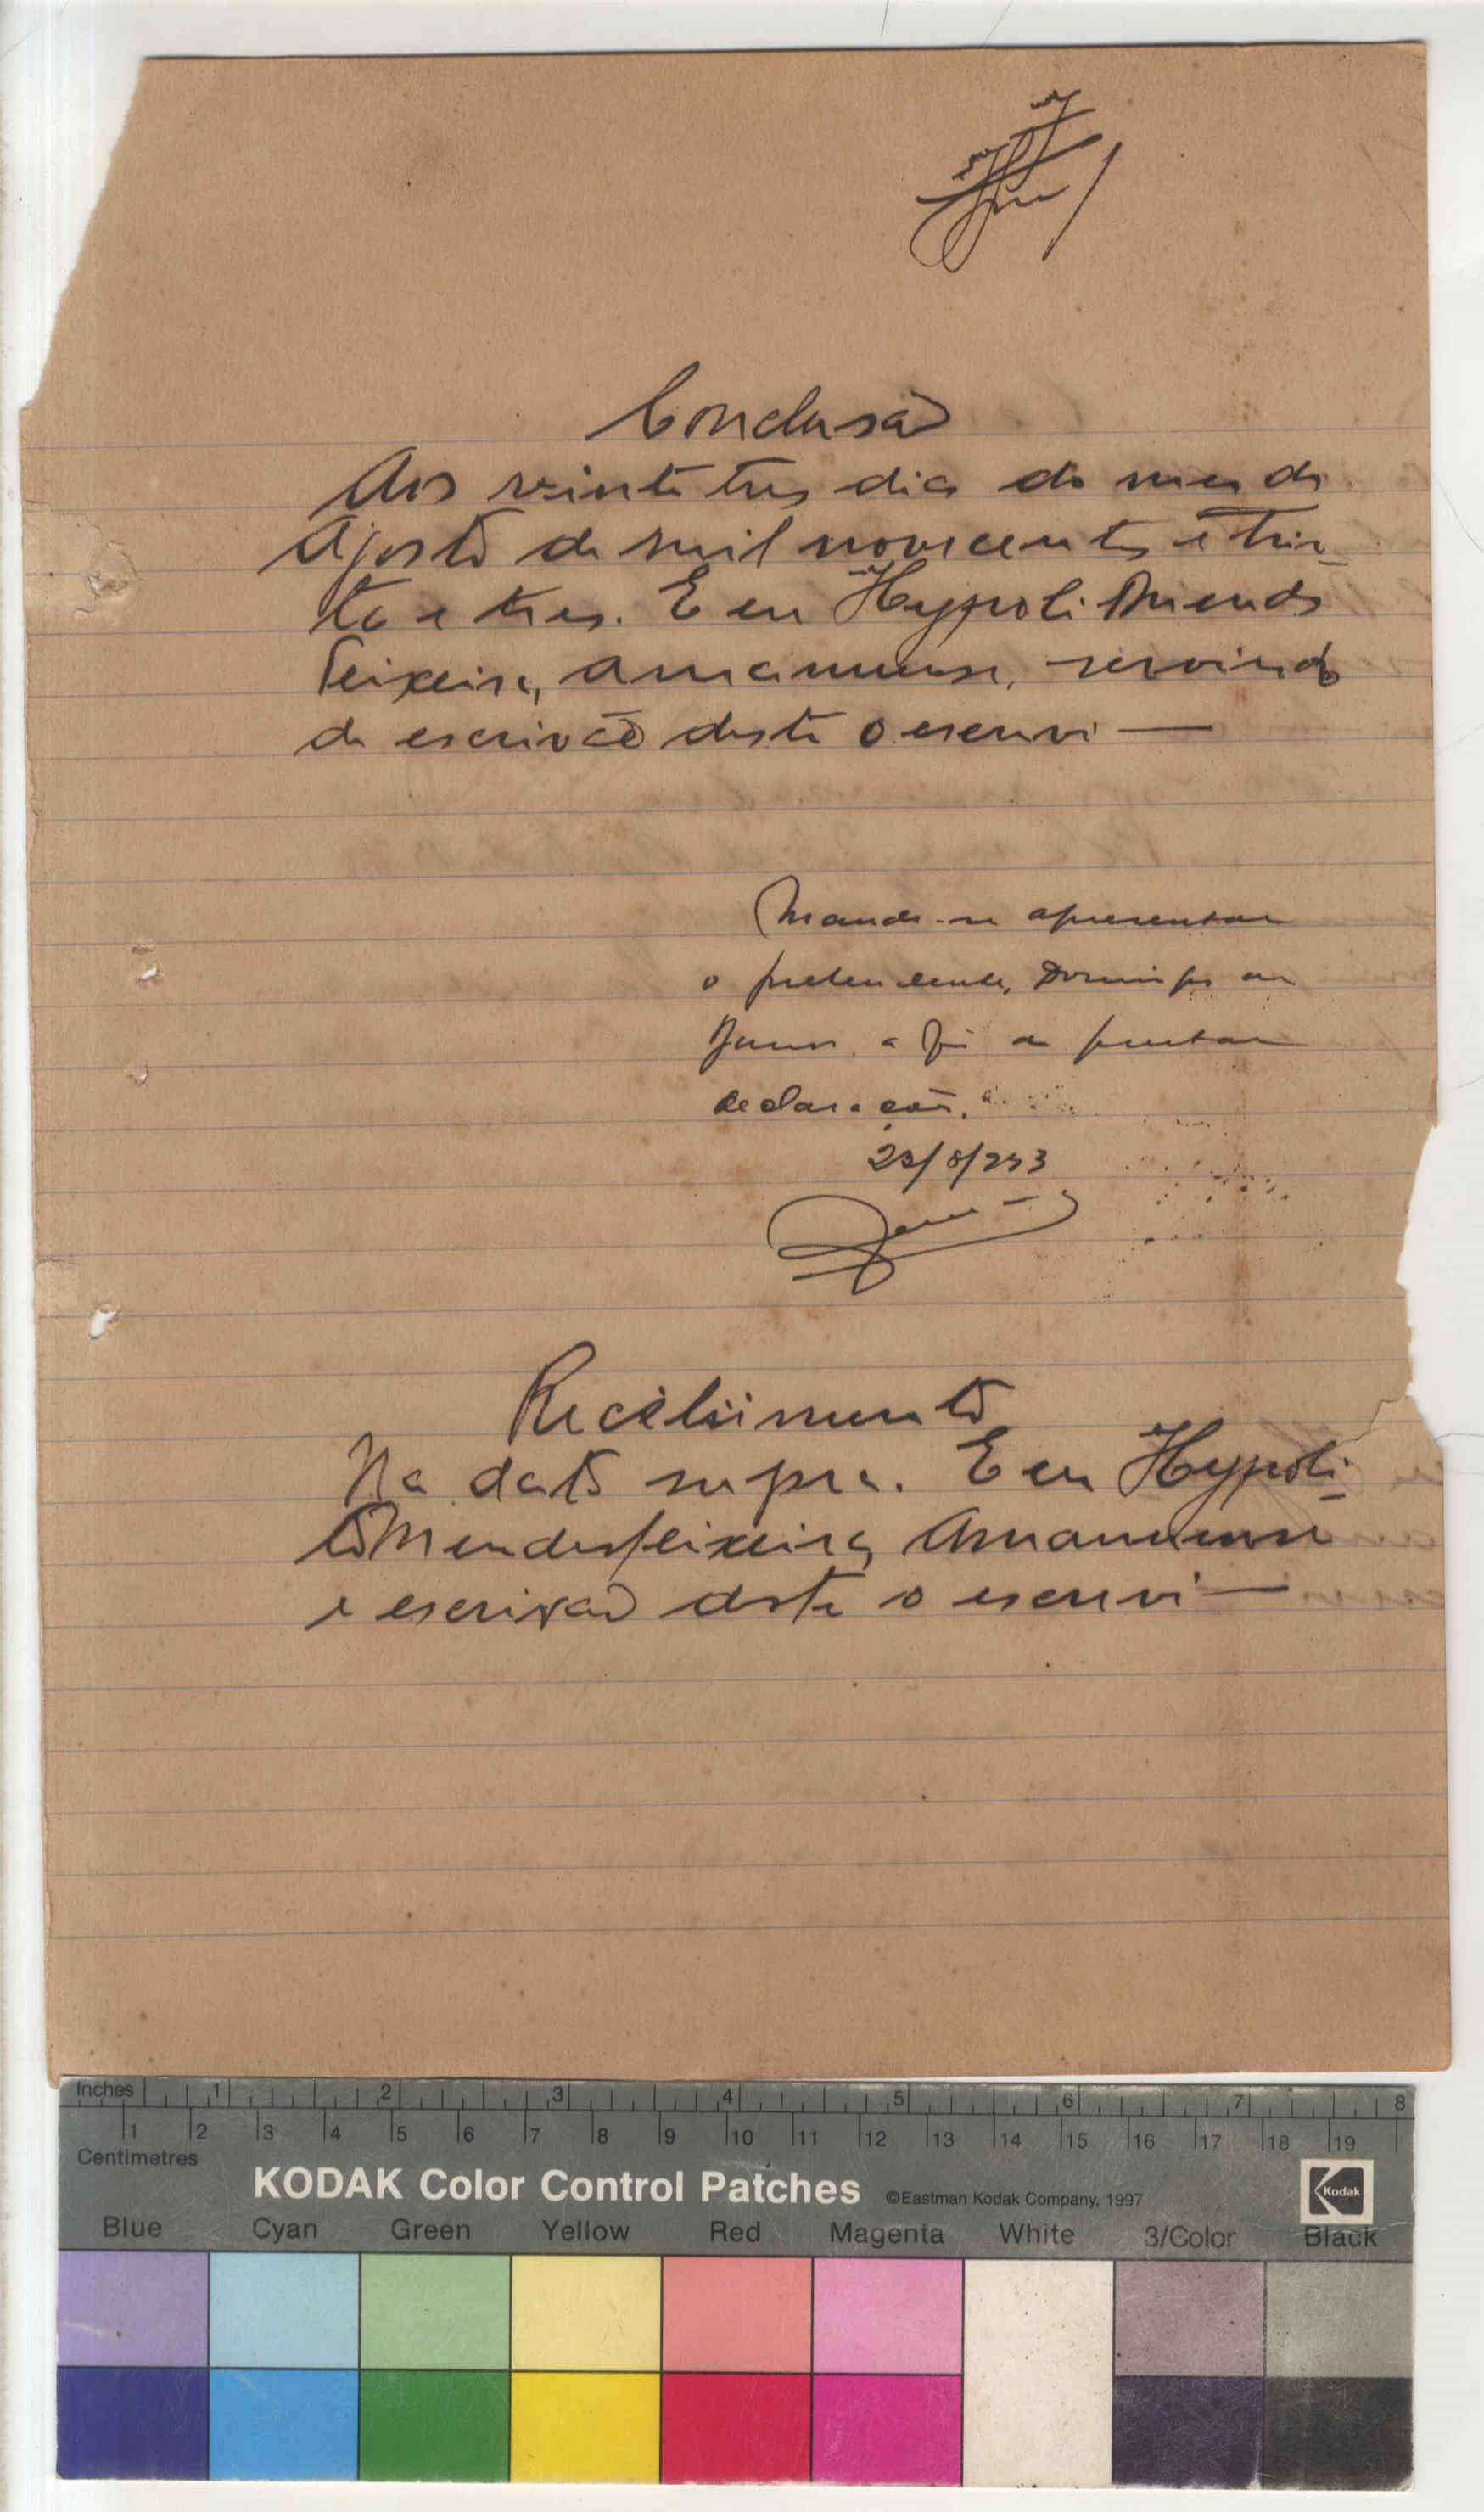 Conclusão
Aos vinte tres dias do mes de
Agosto de mil novecentos e trin-
ta e tres. E eu Hypoli Mends
Teixeira, amanuense, servindo
de escrivão deste o escrevi —
Mande-se apresentar
o pretendente, Domingos
a fim de prestar
declarações.
Recebimento
Na data supra. E eu Hypoli-
to Mendes Teixeira, Amanuense
e escrivão deste o escrevi —
Inches 1 2 3 4 5 6 7 8
1 2 3 4 5 6 7 8 9 10 11 12 13 14 15 16 17 18 19
Centimetres
KODAK Color Control Patches ©Eastman Kodak Company, 1997 Kodak
Blue Cyan Green Yellow Red Magenta White 3/Color Black